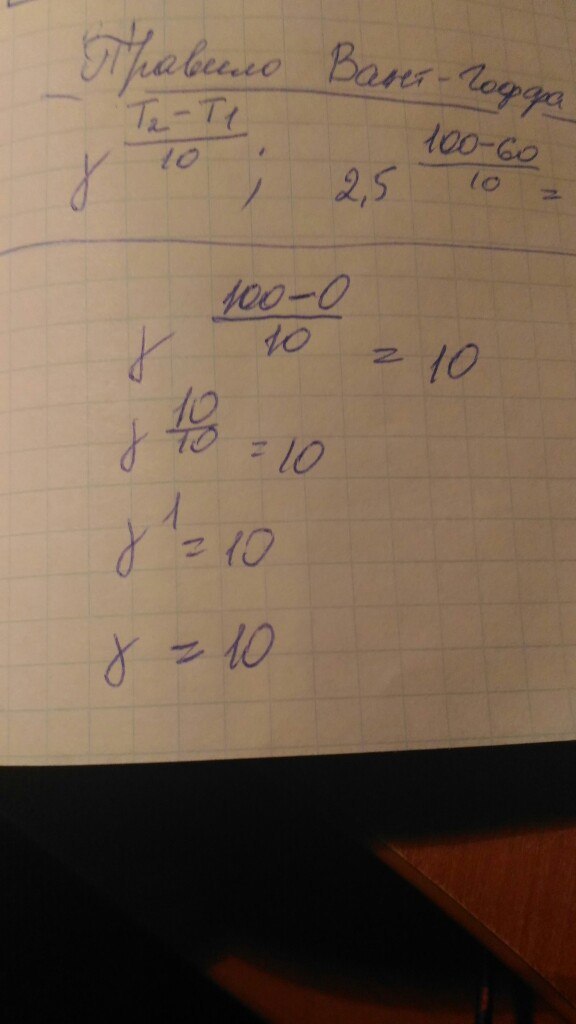 Правило Вант-Гоффа
γ^((T₂-T₁)/10) ; 2,5^((100-60)/10) =
γ^((100-0)/10) = 10
γ^(10/10) = 10
γ^1 = 10
γ = 10